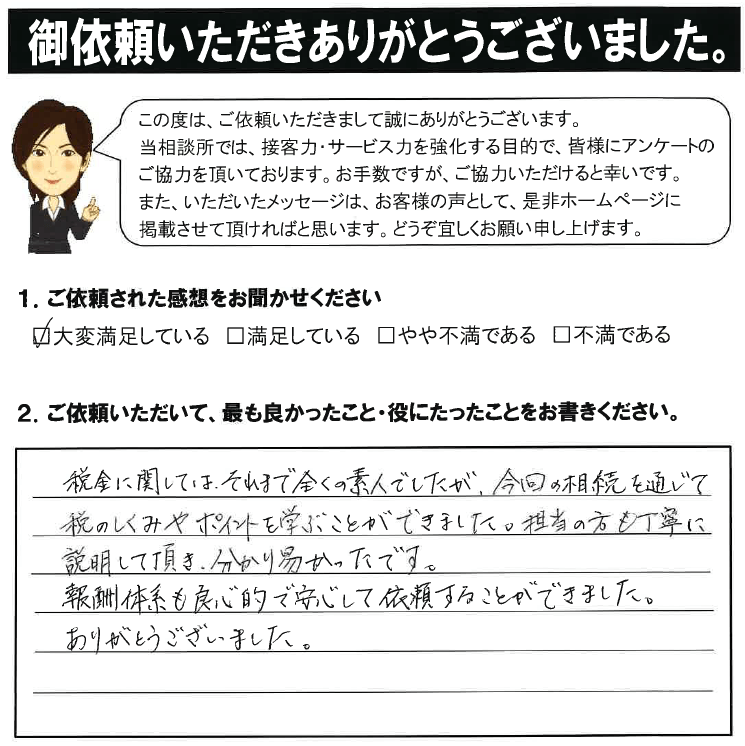 御依頼いただきありがとうございました。
この度は、ご依頼いただきまして誠にありがとうございます。
当相談所では、接客力・サービス力を強化する目的で、皆様にアンケートの
ご協力を頂いております。お手数ですが、ご協力いただけると幸いです。
また、いただいたメッセージは、お客様の声として、是非ホームページに
掲載させて頂ければと思います。どうぞ宜しくお願い申し上げます。
1. ご依頼された感想をお聞かせください
☑大変満足している □満足している □やや不満である □不満である
2. ご依頼いただいて、最も良かったこと・役にたったことをお書きください。
税金に関しては、それまで全くの素人でしたが、今回の相続を通じて
税のしくみやポイントを学ぶことができました。担当の方も丁寧に
説明して頂き、分かり易かったです。
報酬体系も良心的で安心して依頼することができました。
ありがとうございました。